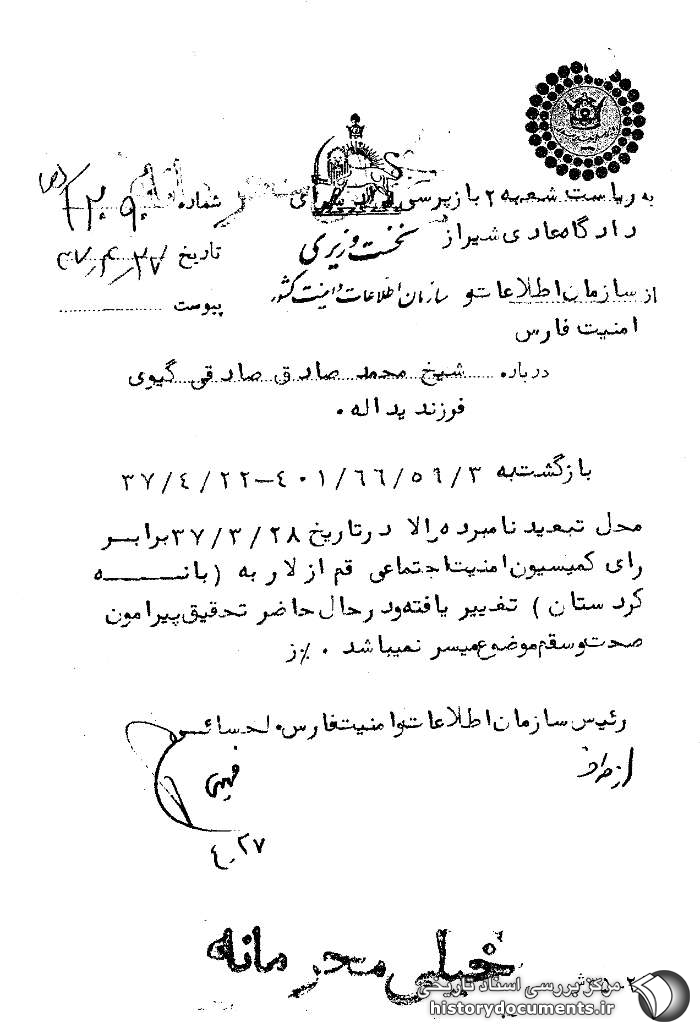 به ریاست شعبه ۲ بازپرسی
دادگاه عادی شیراز
نخست وزیری
سازمان اطلاعات و امنیت کشور
شماره
تاریخ ۳۷/۴/۲۷
پیوست
از سازمان اطلاعات و
امنیت فارس
درباره شیخ محمد صادق صادقی گیوی
فرزند یداله .
بازگشت به ۳ / ۵۹ / ۶۶ / ۴۰۱ – ۳۷/۴/۲۲
محل تبعید نامبرده بالا در تاریخ ۳۷/۳/۲۸ برابر
رای کمیسیون امنیت اجتماعی قم از لار به ( بانه
کردستان ) تغییر یافته و در حال حاضر تحقیق پیرامون
صحت و سقم موضوع میسر نمیباشد . ٪ ز
رئیس سازمان اطلاعات و امنیت فارس . لحسائی
از طرف
۴/۲۷
خیلی محرمانه
مرکز بررسی اسناد تاریخی
historydocuments.ir